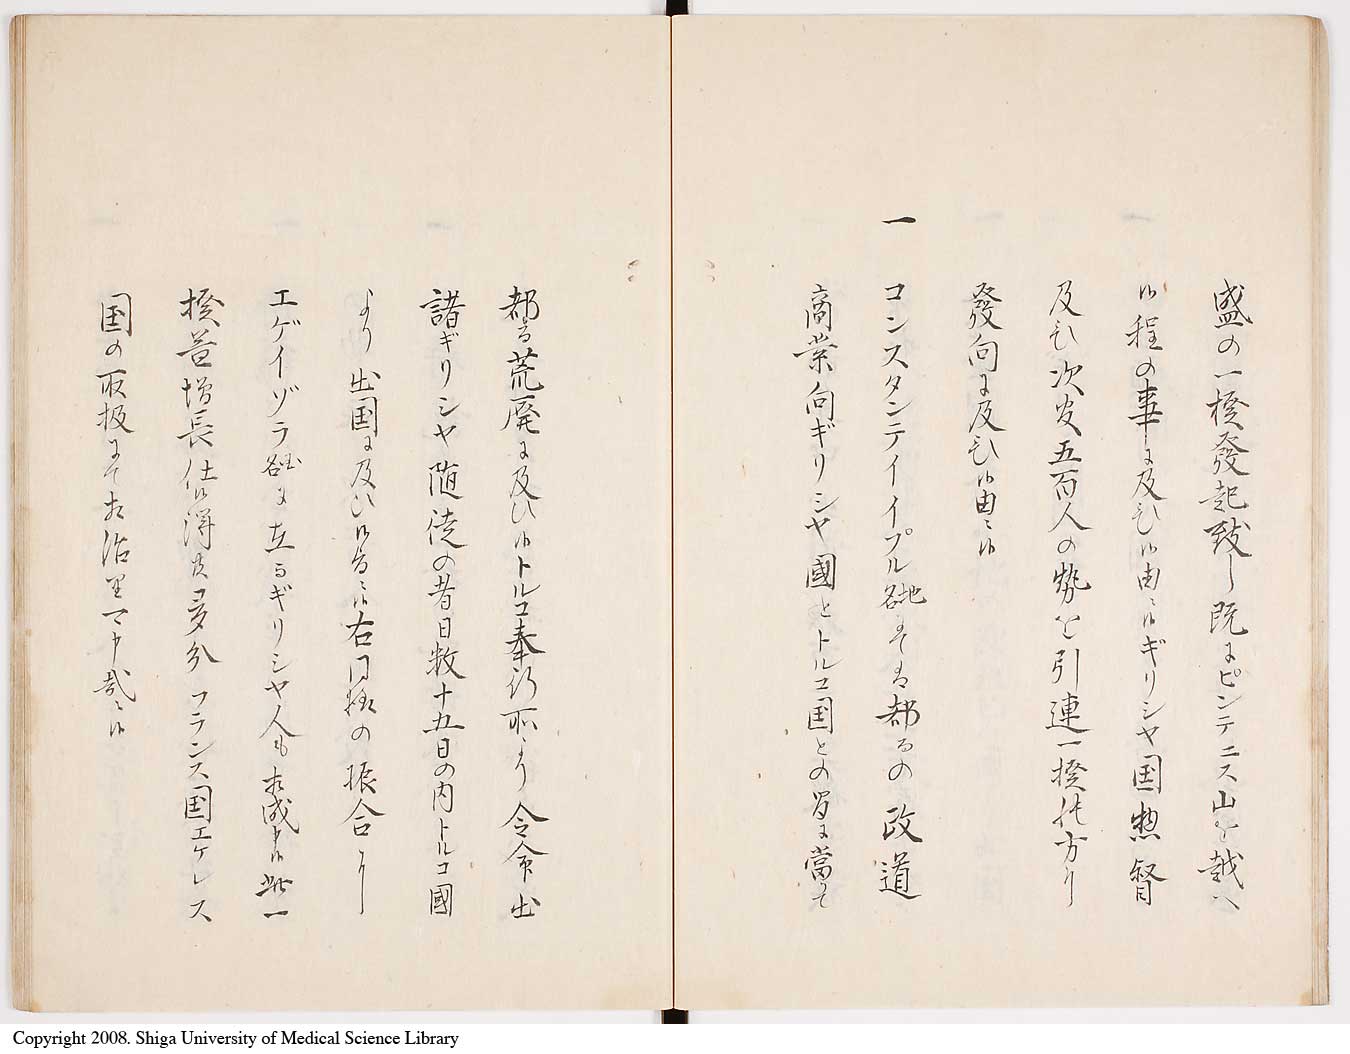 盛の一揆發起致し既にピンテニス山を越へ
候程の事に及ひ候由ニ候ギリシヤ国惣督
及ひ次官五百人の勢を引連一揆の方り
發向に及ひ候由ニ候
一 コンスタンテイイプル地名にては都るの政道
商業向ギリシヤ國とトルコ国との間に當て
都る荒廃に及ひ候トルコ奉行所より令命出
諸ギリシヤ随従の者日数十五日の内トルコ國
より出国に及ひ候旨ニ候右同様の振合より
エゲイゾラ地名に在るギリシヤ人も相成申候此一
揆若増長仕候得共多分フランス国エゲレス
国の取扱にて相治里可申哉ニ候
Copyright 2008. Shiga University of Medical Science Library